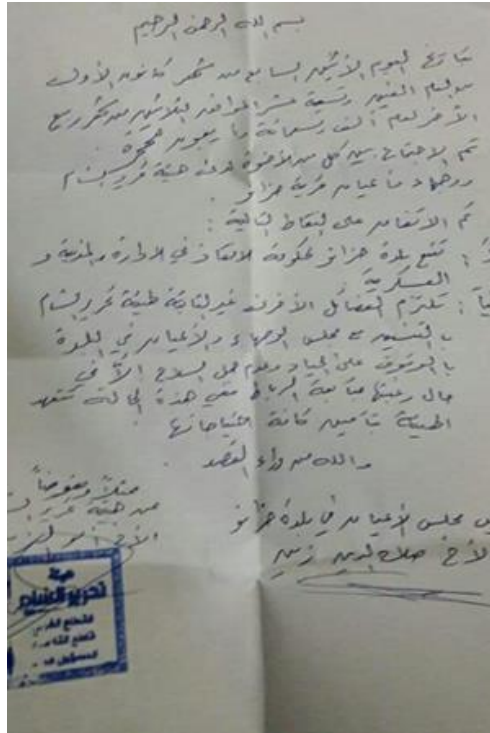 بسم الله الرحمن الرحيم
بتاريخ اليوم الأثنين السابع من شهر كانون الأول
من العام ألفين وتسعة عشر الموافق الثلاثين من شهر ربيع
الآخر لعام ألف
تم الاجتماع بين كل من الأخوة في هيئة تحرير الشام
ووجهاء وأعيان قرية حزانو
تم الاتفاق على النقاط التالية :
تتبع بلدة حزانو لحكومة الإنقاذ في الإدارة المدنية و
العسكرية
: تلتزم الفصائل الأخرى غير التابعة لهيئة تحرير الشام
بالتنسيق مع مجلس الوجهاء والأعيان في البلدة
بالوقوف على الحياد وعدم حمل السلاح إلا في
حال رغبتها متابعة الرباط ففي هذه الحالة تتعهد
الهيئة بتأمين كافة احتياجاتها
والله من وراء القصد
ممثلاً ومفوضاً
من هيئة تحرير
الأخ أبو
مجلس الأعيان في بلدة حزانو
الأخ صلاح الدين
هيئة
تحرير الشام